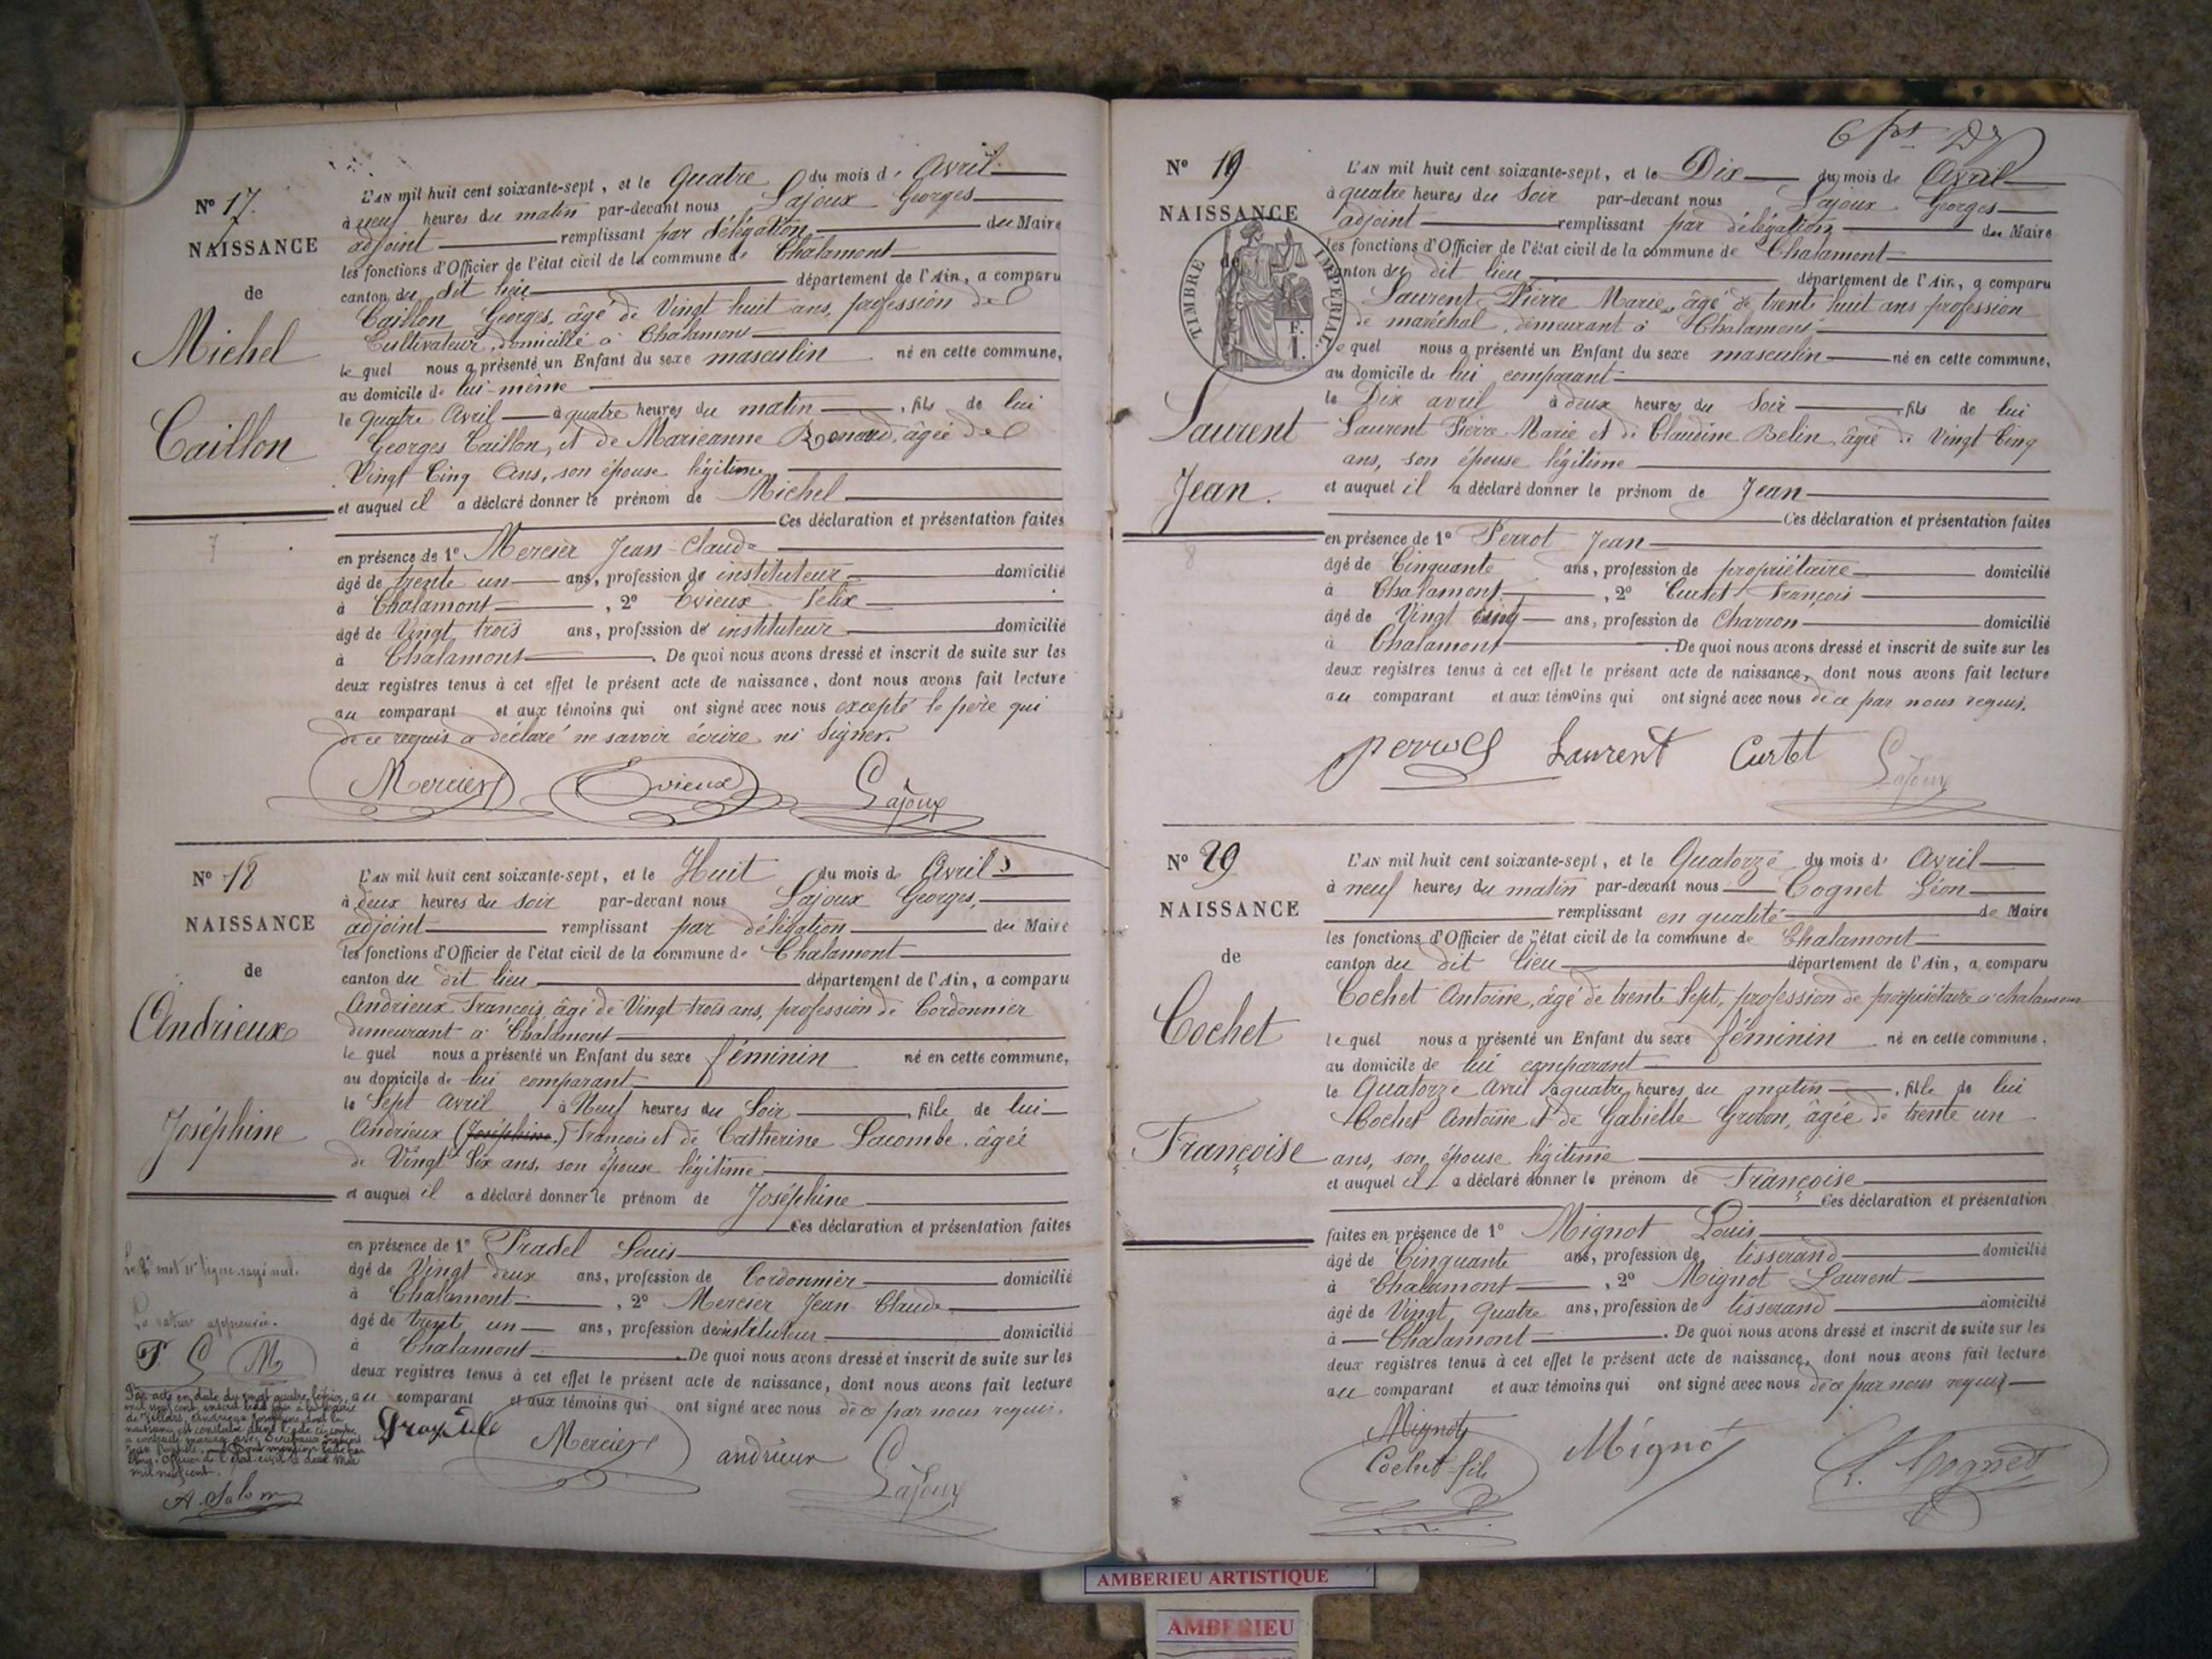 N° 17.
NAISSANCE
de
Michel
Caillon
L'AN mil huit cent soixante-sept, et le Quatre du mois d' Avril
à neuf heures du matin par-devant nous Lajoux Georges
adjoint remplissant par délégation du Maire
les fonctions d'Officier de l'état civil de la commune de Chalamont
canton du dit lieu département de l'Ain, a comparu
Caillon Georges, âgé de Vingt huit ans, profession de
Cultivateur, domicilié à Chalamont
le quel nous a présenté un Enfant du sexe masculin né en cette commune,
au domicile de lui-même
le quatre Avril à quatre heures du matin, fils de lui
Georges Caillon, et de Marieanne Renard, âgée de
Vingt Cinq Ans, son épouse légitime
et auquel il a déclaré donner le prénom de Michel
Ces déclaration et présentation faites
en présence de 1° Mercier Jean-Claude
âgé de trente un ans, profession de instituteur domicilié
à Chalamont, 2° Evieux Felix
âgé de Vingt trois ans, profession de instituteur domicilié
à Chalamont. De quoi nous avons dressé et inscrit de suite sur les
deux registres tenus à cet effet le présent acte de naissance, dont nous avons fait lecture
au comparant et aux témoins qui ont signé avec nous excepté le père qui
de ce requis a déclaré ne savoir écrire ni signer.
Mercier Evieux Lajoux
N° 18
NAISSANCE
de
Andrieux
Joséphine
L'AN mil huit cent soixante-sept, et le Huit du mois de Avril
à deux heures du soir par-devant nous Lajoux Georges,
adjoint remplissant par délégation du Maire
les fonctions d'Officier de l'état civil de la commune de Chalamont
canton du dit lieu département de l'Ain, a comparu
Andrieux François, âgé de Vingt trois ans, profession de Cordonnier
demeurant à Chalamont
le quel nous a présenté un Enfant du sexe féminin né en cette commune,
au domicile de lui comparant
le Sept Avril à Neuf heures du Soir, fille de lui
Andrieux (Joséphine.) François et de Catherine Lacombe, âgée
de Vingt Six ans, son épouse légitime
et auquel il a déclaré donner le prénom de Joséphine
Ces déclaration et présentation faites
en présence de 1° Pradel Louis
âgé de Vingt deux ans, profession de Cordonnier domicilié
à Chalamont, 2° Mercier Jean Claude
âgé de trente un ans, profession de instituteur domicilié
à Chalamont. De quoi nous avons dressé et inscrit de suite sur les
deux registres tenus à cet effet le présent acte de naissance, dont nous avons fait lecture
au comparant et aux témoins qui ont signé avec nous de ce par nous requis.
Mercier andrieux Lajoux
mot ligne rayé nul.
La rature approuvée.
P. L M
Par acte en date du vingt quatre février
mil neuf cent, inscrit
de Villars, Andrieux Joséphine dont la
naissance est constatée dans l'acte ci-contre
a contracté mariage avec
mil neuf cent.
A. Salom
N° 19
NAISSANCE
de
TIMBRE IMPERIAL
F.
1.
Laurent
Jean.
L'AN mil huit cent soixante-sept, et le Dix du mois de Avril
à quatre heures du Soir par-devant nous Lajoux Georges
adjoint remplissant par délégation du Maire
les fonctions d'Officier de l'état civil de la commune de Chalamont
canton du dit lieu département de l'Ain, a comparu
Laurent Pierre Marie, âgé de trente huit ans profession
de maréchal, demeurant à Chalamont
le quel nous a présenté un Enfant du sexe masculin né en cette commune,
au domicile de lui comparant
le Dix avril à deux heures du Soir, fils de lui
Laurent Pierre Marie et de Claudine Belin, âgée de Vingt Cinq
ans, son épouse légitime
et auquel il a déclaré donner le prénom de Jean
Ces déclaration et présentation faites
en présence de 1° Perrot Jean
âgé de Cinquante ans, profession de propriétaire domicilié
à Chalamont, 2° Curtet François
âgé de Vingt cinq ans, profession de Charron domicilié
à Chalamont. De quoi nous avons dressé et inscrit de suite sur les
deux registres tenus à cet effet le présent acte de naissance, dont nous avons fait lecture
au comparant et aux témoins qui ont signé avec nous de ce par nous requis.
Laurent Curtet Lajoux
N° 20
NAISSANCE
de
Cochet
Françoise
L'AN mil huit cent soixante-sept, et le Quatorze du mois d' Avril
à neuf heures du matin par-devant nous Cognet Léon
remplissant en qualité de Maire
les fonctions d'Officier de l'état civil de la commune de Chalamont
canton du dit lieu département de l'Ain, a comparu
Cochet Antoine, âgé de trente Sept, profession de propriétaire à chalamont
le quel nous a présenté un Enfant du sexe féminin né en cette commune,
au domicile de lui comparant
le Quatorze Avril à quatre heures du matin, fille de lui
Cochet Antoine et de Gabielle Grobon, âgée de trente un
ans, son épouse légitime
et auquel il a déclaré donner le prénom de Françoise
Ces déclaration et présentation
faites en présence de 1° Mignot Louis
âgé de Cinquante ans, profession de tisserand domicilié
à Chalamont, 2° Mignot Laurent
âgé de Vingt Quatre ans, profession de tisserand domicilié
à Chalamont. De quoi nous avons dressé et inscrit de suite sur les
deux registres tenus à cet effet le présent acte de naissance, dont nous avons fait lecture
au comparant et aux témoins qui ont signé avec nous de ce par nous requis
Mignot
Cochet fils Mignot L. Cognet
AMBERIEU ARTISTIQUE
AMBERIEU